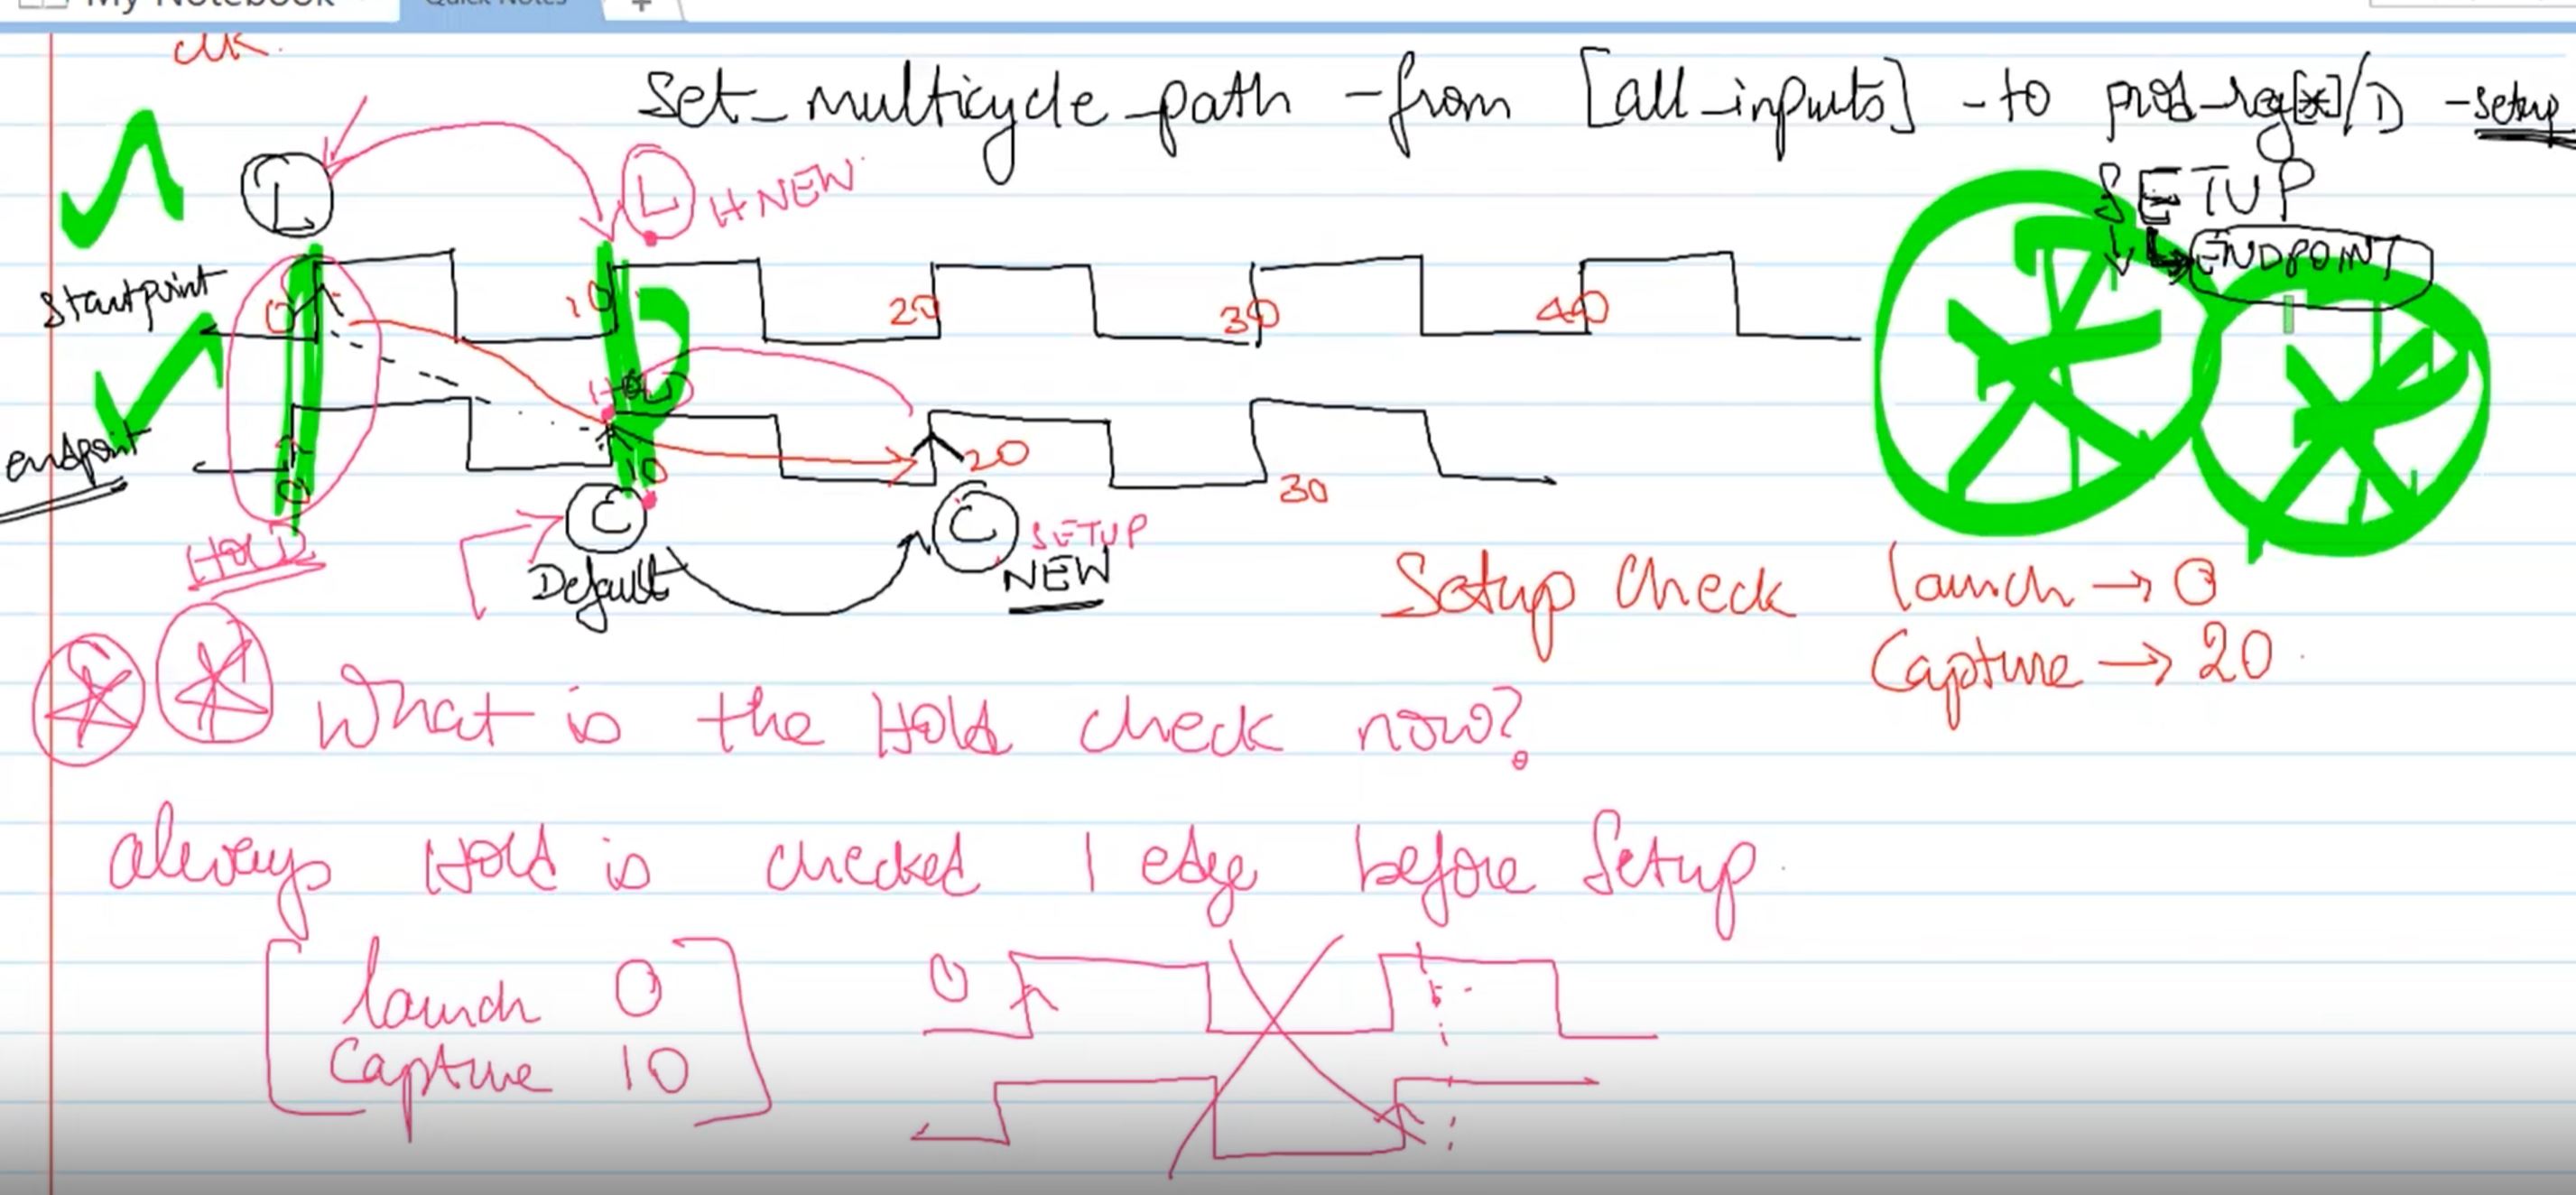 My Notebook
Quick Notes
+
clk
Set_multicycle_path -from [all_inputs] -to prod_reg[*]/D -setup
L
L HNEW
SETUP
ENDPOINT
Startpoint
0 10 20 30 40
HOLD
endpoint
0 10 20 30
C C SETUP
HOLD
Default
NEW
Setup Check launch → 0
Capture → 20
What is the Hold check now?
always Hold is checked 1 edge before Setup.
launch 0
Capture 10
0